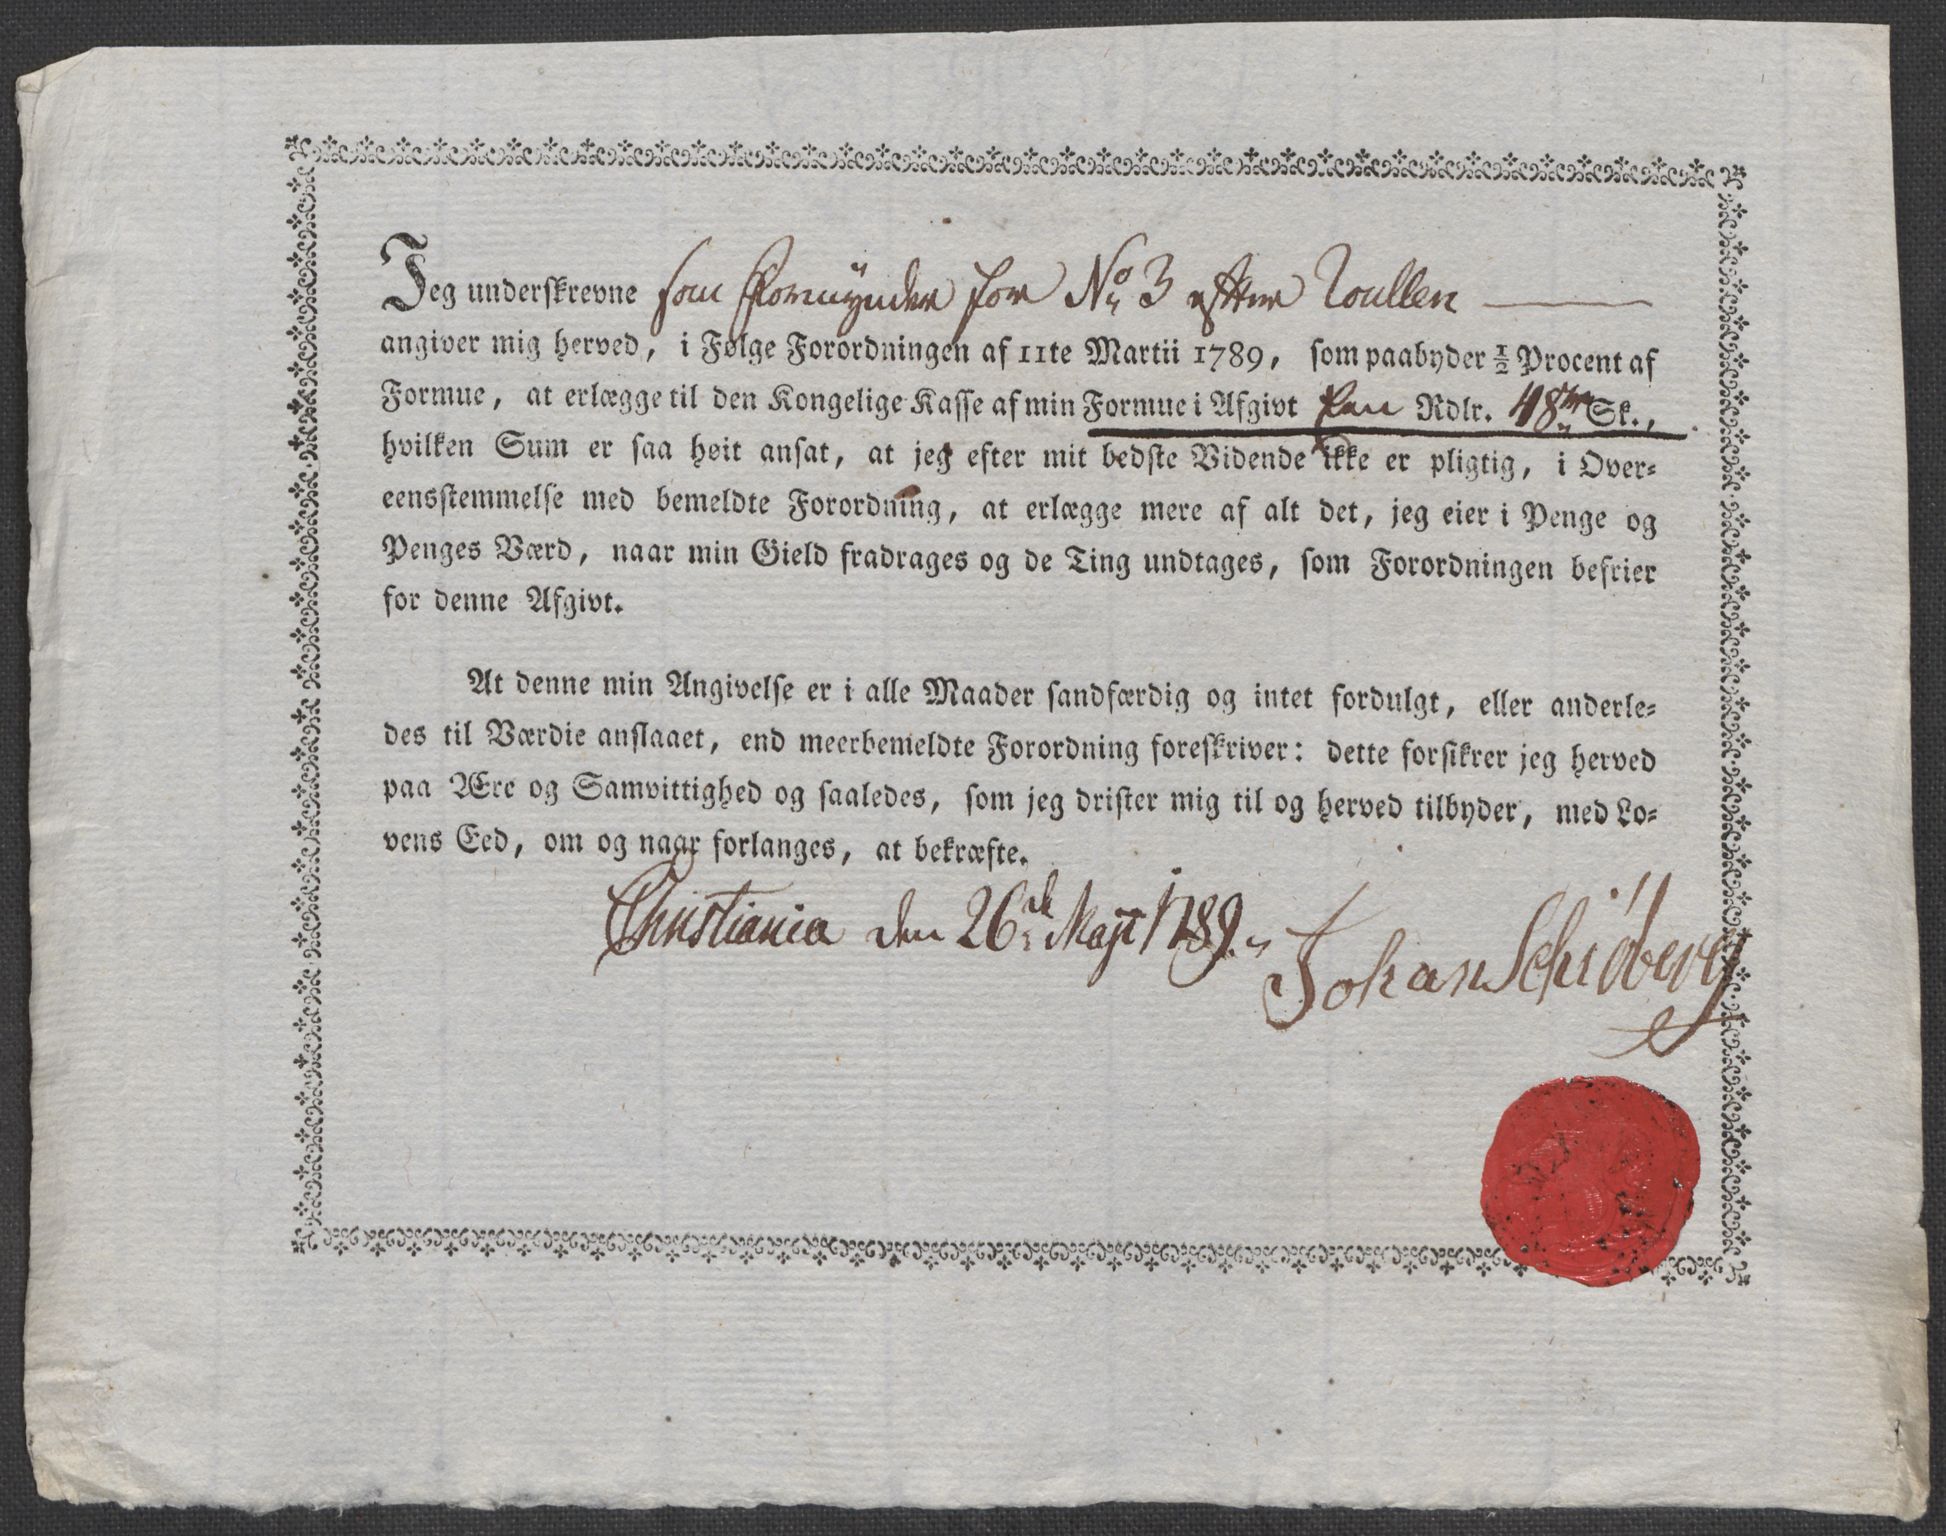 Jeg underskrevne som Formynder for No 3 efter Roullen
angiver mig herved, i Følge Forordningen af 11te Martii 1789, som paabyder ½ Procent af
Formue, at erlægge til den Kongelige Kasse af min Formue i Afgivt Rdlr. 48 Sk.,
hvilken Sum er saa høit ansat, at jeg efter mit bedste Vidende ikke er pligtig, i Over=
eensstemmelse med bemeldte Forordning, at erlægge mere af alt det, jeg eier i Penge og
Penges Værd, naar min Gield fradrages og de Ting undtages, som Forordningen befrier
for denne Afgivt.
At denne min Angivelse er i alle Maader sandfærdig og intet fordulgt, eller anderle=
des til Værdie anslaaet, end meerbemeldte Forordning foreskriver: dette forsikrer jeg herved
paa Ære og Samvittighed og saaledes, som jeg drister mig til og herved tilbyder, med Lo=
vens Eed, om og naar forlanges, at bekræfte.
Christiania den 26de Maji 1789.
Johan Schiöberg